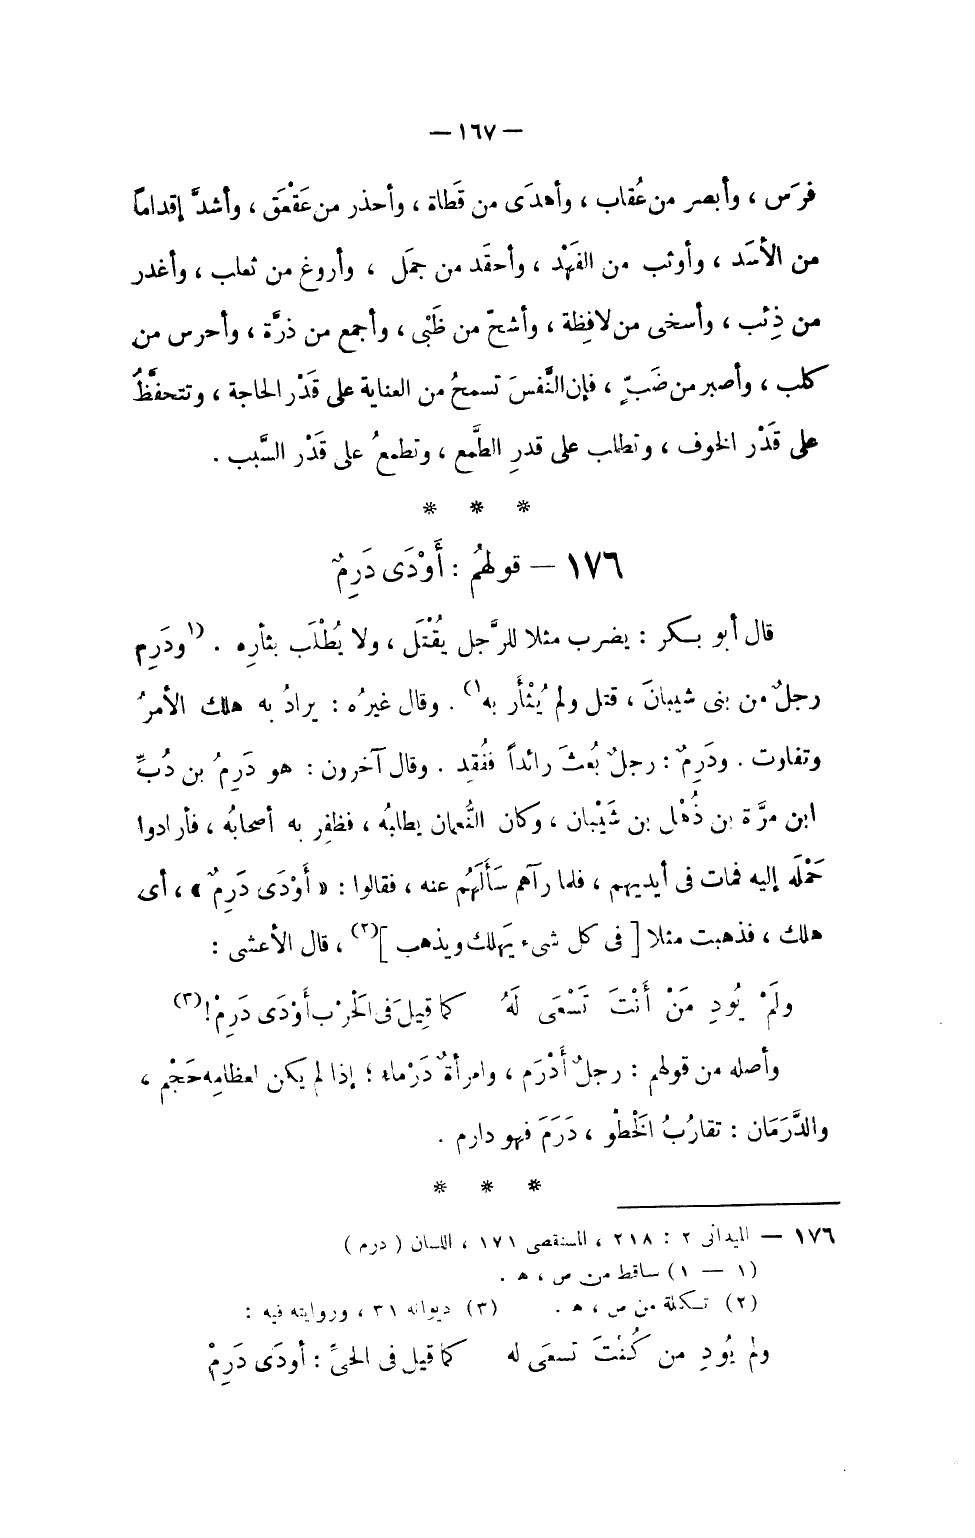 — ١٦٧ —
فرَس ، وأبصر من عُقاب ، وأهدَى من قَطاة ، وأحذر من عَقْعَق ، وأشدَّ إقداماً
من الأسَد ، وأوثب من الفَهْد ، وأحقَد من جمَل ، وأروغ من ثعلب ، وأغدر
من ذِئب ، وأسخى من لافِظة ، وأشحّ من ظَبْى ، وأجمع من ذرَّة ، وأحرس من
كلب ، وأصبر من ضَبٍّ ، فإن النَّفسَ تسمحُ من العناية على قَدْر الحاجة ، وتتحفَّظُ
على قَدْر الخوف ، وتطلب على قدرِ الطَّمع ، وتطمعُ على قَدْر السَّبب .
* * *
١٧٦ — قولهُم : أَوْدَى دَرِمٌ
قال أبو بكر : يضرب مثلا للرَّجل يُقْتَل ، ولا يُطْلَب بثأرِه . (١ ودَرِم
رجلٌ من بنى شيبانَ ، قتل ولم يُثْأَر به١) . وقال غيرُه : يرادُ به هلك الأمرُ
وتفاوت . ودَرِمٌ : رجلٌ بُعثَ رائداً ففُقِد . وقال آخرون : هو دَرِمُ بن دُبٍّ
ابن مرَّة بن ذُهْل بن شَيْبان ، وكان النُّعمان يطلبهُ ، فظفِر به أصحابهُ ، فأرادوا
حَمْلَه إليه فمات فى أيديهم ، فلما رآهم سَأَلَهُم عنه ، فقالوا : « أَوْدَى دَرِمٌ » ، أى
هلك ، فذهبت مثلا [ فى كل شىء يَهلك ويذهب ](٢) ، قال الأعشى :
ولَمْ يُودِ مَنْ أَنْتَ تَسْعَى لَهُ كما قِيلَ فى الحَرْب أَوْدَى دَرِمْ!(٣)
وأصله من قولهم : رجلٌ أدْرَم ، وامرأةٌ دَرْماء ؛ إذا لم يكن لعظامِه حَجْم ،
والدَّرَمَان : تقارُبُ الخَطْو ، دَرَمَ فهو دارم .
* * *
١٧٦ — الميدانى ٢ : ٢١٨ ، المستقصى ١٧١ ، اللسان ( درم )
(١ — ١) ساقط من ص ، هـ .
(٢) تكملة من ص ، هـ . (٣) ديوانه ٣١ ، وروايته فيه :
ولم يُودِ من كُنْتَ تسعَى له كما قيل فى الحىِّ : أودَى دَرِمْ